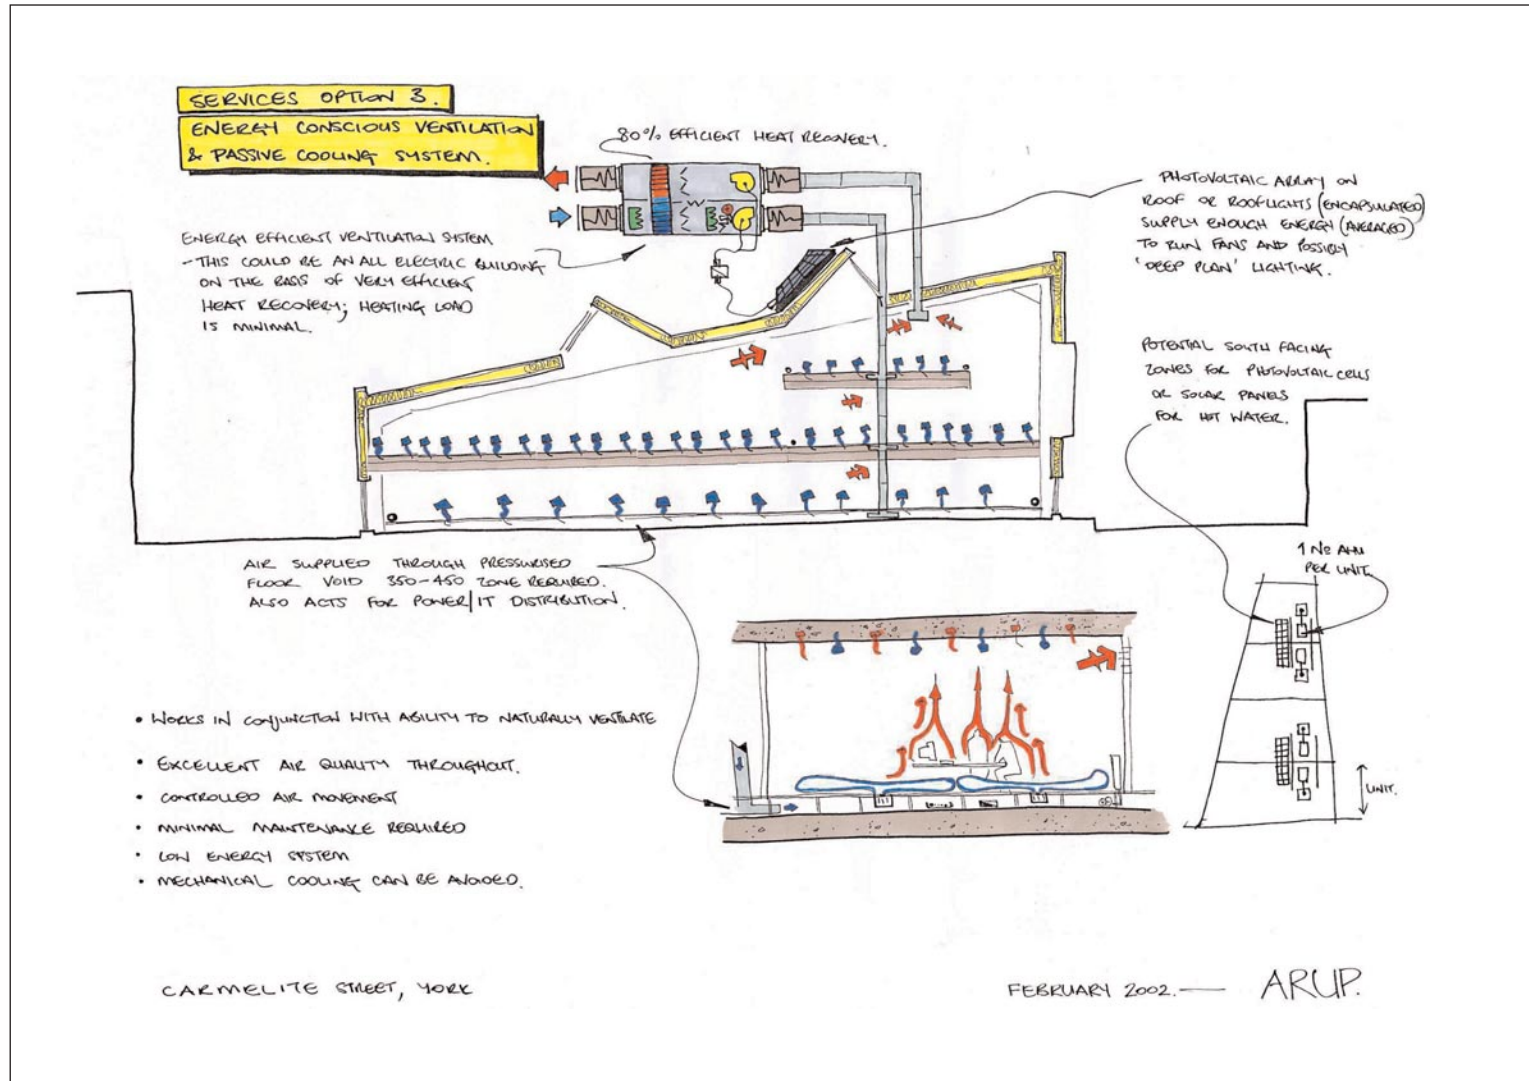 SERVICES OPTION 3.
ENERGY CONSCIOUS VENTILATION
& PASSIVE COOLING SYSTEM.
80% EFFICIENT HEAT RECOVERY.
ENERGY EFFICIENT VENTILATION SYSTEM
- THIS COULD BE AN ALL ELECTRIC BUILDING
ON THE BASIS OF VERY EFFICIENT
HEAT RECOVERY; HEATING LOAD
IS MINIMAL.
PHOTOVOLTAIC ARRAY ON
ROOF OR ROOFLIGHTS (ENCAPSULATED)
SUPPLY ENOUGH ENERGY (AVERAGED)
TO RUN FANS AND POSSIBLY
'DEEP PLAN' LIGHTING.
POTENTIAL SOUTH FACING
ZONES FOR PHOTOVOLTAIC CELLS
OR SOLAR PANELS
FOR HOT WATER.
AIR SUPPLIED THROUGH PRESSURISED
FLOOR VOID 350-450 ZONE REQUIRED.
ALSO ACTS FOR POWER/IT DISTRIBUTION.
1 No AHU
PER UNIT.
UNIT.
• WORKS IN CONJUNCTION WITH ABILITY TO NATURALLY VENTILATE
• EXCELLENT AIR QUALITY THROUGHOUT.
• CONTROLLED AIR MOVEMENT
• MINIMAL MAINTENANCE REQUIRED
• LOW ENERGY SYSTEM
• MECHANICAL COOLING CAN BE AVOIDED.
CARMELITE STREET, YORK
FEBRUARY 2002. — ARUP.